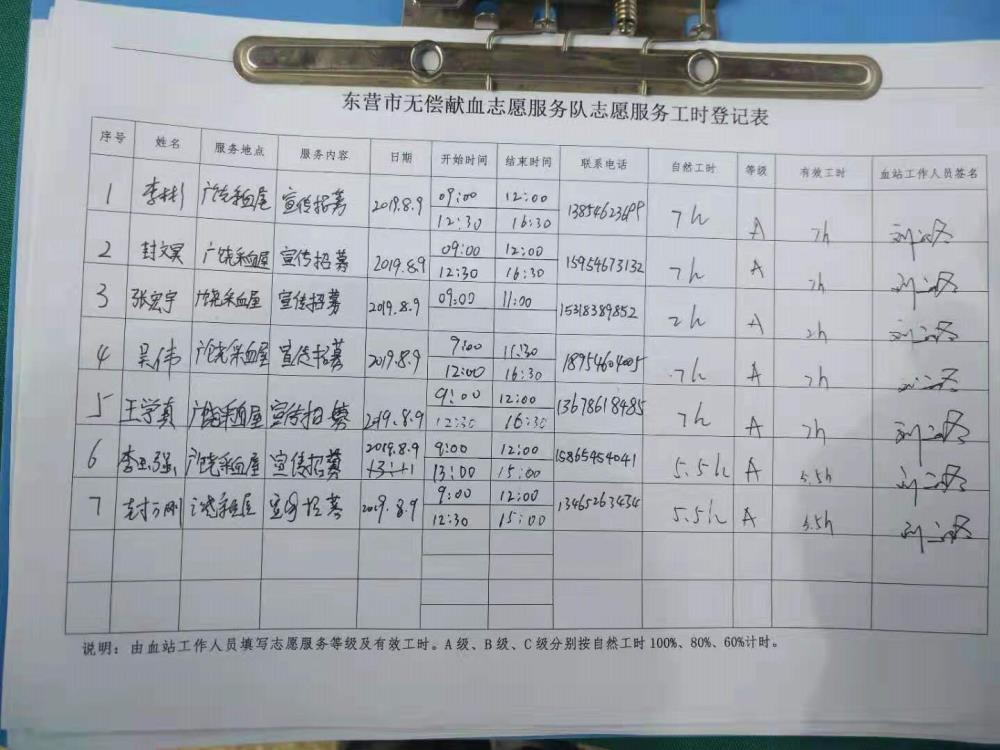 东营市无偿献血志愿服务队志愿服务工时登记表
序号 姓名 服务地点 服务内容 日期 开始时间 结束时间 联系电话 自然工时 等级 有效工时 血站工作人员签名
1 李彬 广饶采血屋 宣传招募 2019.8.9 09:00 12:00 7h A 7h
12:30 16:30
2 封文昊 广饶采血屋 宣传招募 2019.8.9 09:00 12:00 15954673132 7h A 7h
12:30 16:30
3 张宏宇 广饶采血屋 宣传招募 2019.8.9 09:00 11:00 15318389852 2h A 2h
4 吴伟 广饶采血屋 宣传招募 2019.8.9 9:00 11:30 18954604005 7h A 7h
12:00 16:30
5 王学真 广饶采血屋 宣传招募 2019.8.9 9:00 12:00 13678618485 7h A 7h
12:30 16:30
6 广饶采血屋 宣传招募 2019.8.9 9:00 12:00 15865454041 5.5h A 5.5h
13:00 15:00
7 广饶采血屋 宣传招募 2019.8.9 9:00 12:00 13465263434 5.5h A 5.5h
12:30 15:00
说明：由血站工作人员填写志愿服务等级及有效工时。A级、B级、C级分别按自然工时100%、80%、60%计时。